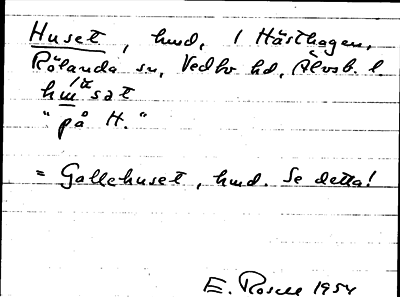 Huset, hmd, i Hästhagen,
Rölanda sn, Vedbo hd, Älvsb. l.
"på H."
= Gallehuset, hmd. Se detta!
E. Rosell 1954